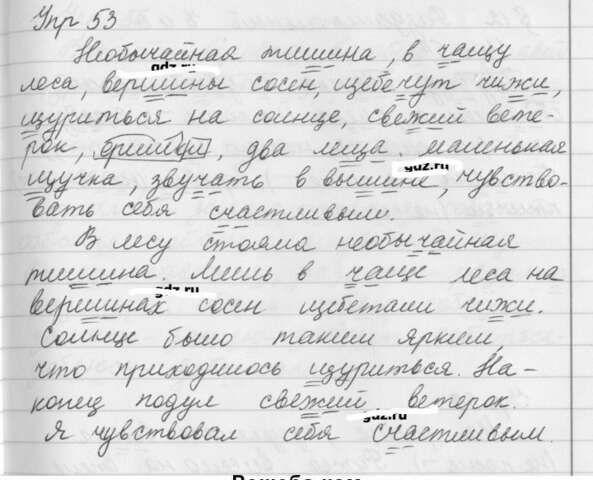 Упр 53
Необычайная тишина, в чащу
леса, вершины сосен, щебечут чижи,
щуриться на солнце, свежий вете-
рок, два леща, маленькая
щучка, звучать в вышине, чувство-
вать себя счастливым.
В лесу стояла необычайная
тишина. Лишь в чаще леса на
вершинах сосен щебетали чижи.
Солнце было таким ярким,
что приходилось щуриться. На-
конец подул свежий ветерок.
Я чувствовал себя счастливым.
gdz.ru
gdz.ru
gdz.ru
gdz.ru